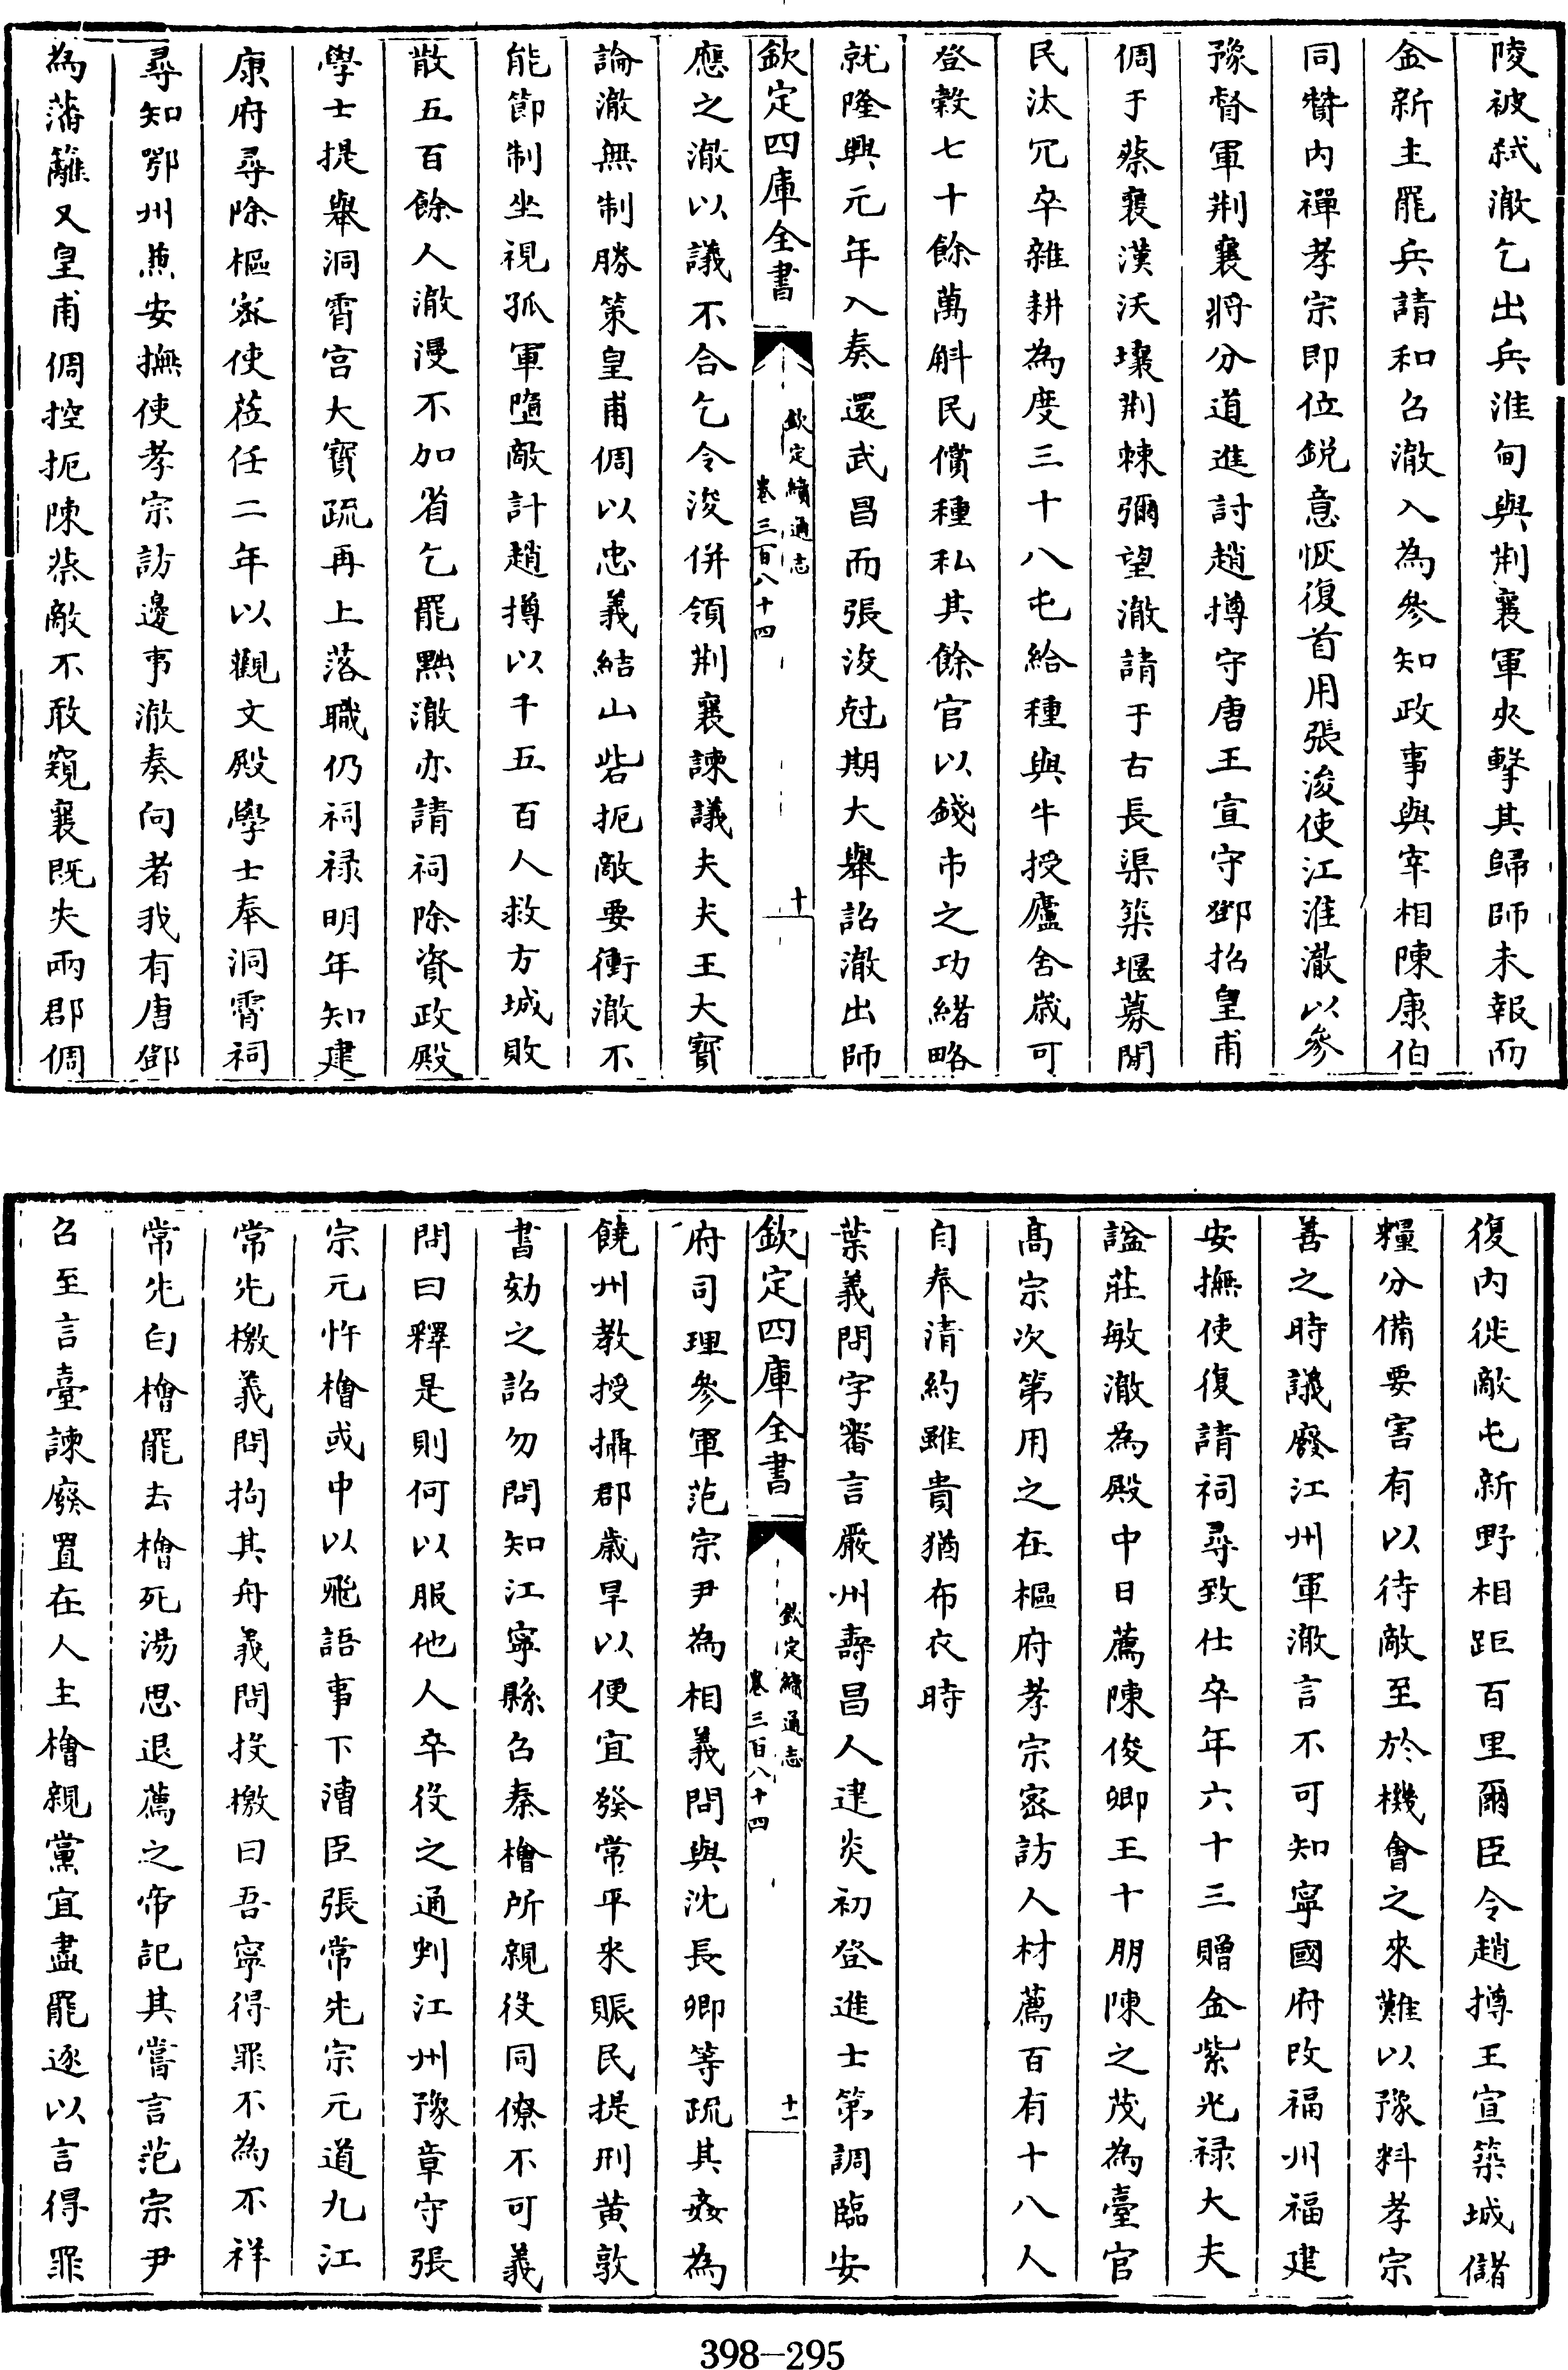 陵被弑澈乞出兵淮甸與荆襄軍夾擊其歸師未報而
金新主罷兵請和召澈入為參知政事與宰相陳康伯
同贊内禪孝宗即位鋭意恢復首用張浚使江淮澈以參
豫督軍荆襄將分道進討趙撙守唐王宣守鄧招皇甫
倜于蔡襄漢沃壤荆棘彌望澈請于古長渠築堰募閒
民汰冗卒雜耕為度三十八屯給種與牛授廬舍歲可
登穀七十餘萬斛民償種私其餘官以錢市之功緒略
就隆興元年入奏還武昌而張浚尅期大舉詔澈出師
欽定四庫全書
欽定續通志
卷三百八十四
十
應之澈以議不合乞令浚併領荆襄諫議大夫王大寳
論澈無制勝策皇甫倜以忠義結山砦扼敵要衝澈不
能節制坐視孤軍墮敵計趙撙以千五百人救方城敗
散五百餘人澈漫不加省乞罷黜澈亦請祠除資政殿
學士提舉洞霄宮大寳疏再上落職仍祠禄明年知建
康府尋除樞宻使莅任二年以觀文殿學士奉洞霄祠
尋知鄂州兼安撫使孝宗訪邊事澈奏向者我有唐鄧
為藩籬又皇甫倜控扼陳蔡敵不敢窺襄既失兩郡倜
復内徙敵屯新野相距百里爾臣令趙撙王宣築城儲
糧分備要害有以待敵至於機會之來難以豫料孝宗
善之時議廢江州軍澈言不可知寧國府改福州福建
安撫使復請祠尋致仕卒年六十三贈金紫光禄大夫
諡莊敏澈為殿中日薦陳俊卿王十朋陳之茂為臺官
高宗次第用之在樞府孝宗宻訪人材薦百有十八人
自奉清約雖貴猶布衣時
葉義問字審言嚴州壽昌人建炎初登進士第調臨安
欽定四庫全書
欽定續通志
卷三百八十四
十一
府司理參軍范宗尹為相義問與沈長卿等疏其姦為
饒州教授攝郡歲旱以便宜發常平米賑民提刑黄敦
書劾之詔勿問知江寧縣召秦檜所親役同僚不可義
問曰釋是則何以服他人卒役之通判江州豫章守張
宗元忤檜或中以飛語事下漕臣張常先宗元道九江
常先檄義問拘其舟義問投檄曰吾寧得罪不為不祥
常先白檜罷去檜死湯思退薦之帝記其嘗言范宗尹
召至言臺諫廢置在人主檜親黨宜盡罷逐以言得罪
398—295